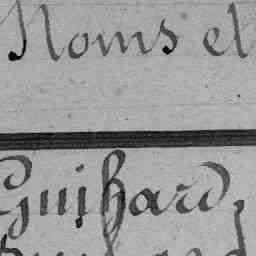 Noms et
Guihard,